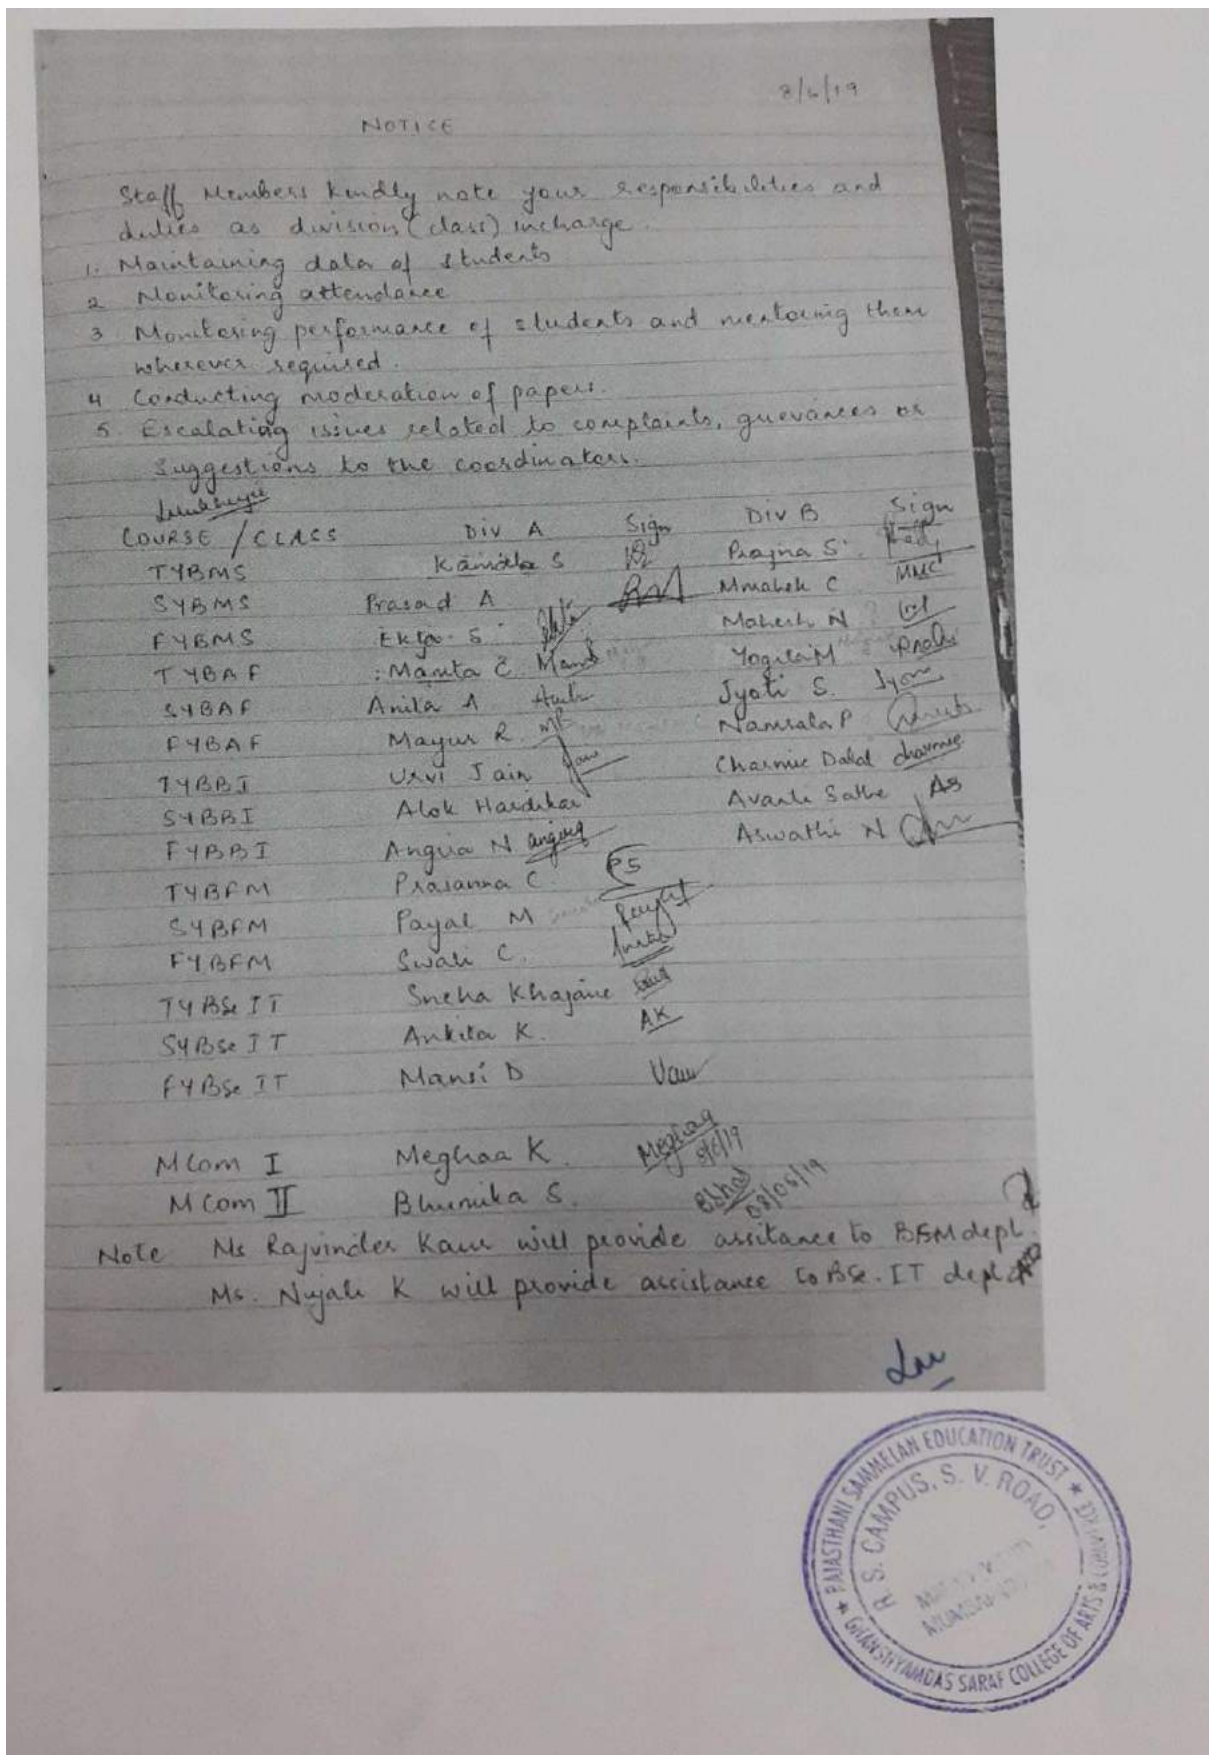 8/6/19
NOTICE
Staff Members kindly note your responsibilities and
duties as division (class) incharge.
1. Maintaining data of students
2 Monitoring attendance
3 Monitoring performance of students and mentoring them
wherever required.
4 Conducting moderation of papers.
5 Escalating issues related to complaints, grievances or
suggestions to the coordinators.
COURSE / CLASS Div A Sign Div B Sign
TYBMS S Prajna S.
SYBMS Prasad A Mmahek C MMC
FYBMS Ekta S Mahesh N
TYBAF Mamta C. Yogita M
SYBAF Anita A Jyoti S. Jyoti
FYBAF Mayur R. MR Namrata P
TYBBI Urvi Jain Charmie Dalal charmie
SYBBI Alok Hardikar Avanti Sathe AS
FYBBI Angira N Aswathi N
TYBFM Prasanna C. PS
SYBFM Payal M
FYBFM Swati C.
TYBSc IT Sneha Khajane
SYBSc IT Ankita K. AK
FYBSc IT Mansi D
MCom I Meghaa K. 8/6/19
M Com II Bhumika S. 08/06/19
Note Ms Rajvinder Kaur will provide assitance to BFM dept.
Ms. K will provide assistance to BSc. IT dept
★ RAJASTHANI SAMMELAN EDUCATION TRUST ★
GHANSHYAMDAS SARAF COLLEGE OF ARTS & COMMERCE
R. S. CAMPUS, S. V. ROAD,